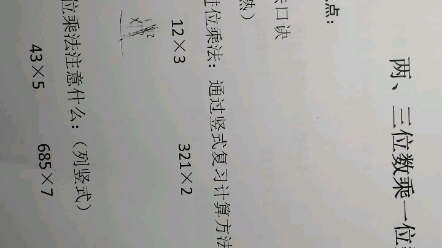 两、三位数乘一位
点：
口诀
位乘法：通过竖式复习计算方法
12×3 321×2
位乘法注意什么：（列竖式）
43×5 685×7